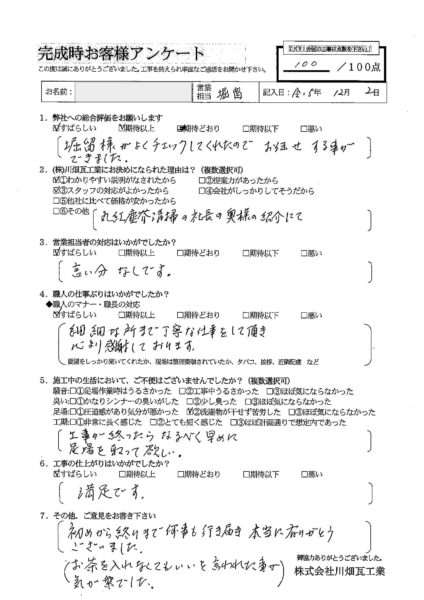 完成時お客様アンケート
この度は誠にありがとうございました。工事を終えられ率直なご感想をお聞かせ下さい。
100 /100点
お名前:
営業担当 堀留
記入日:令.5年 12月 2日
1. 弊社への総合評価をお願いします
☑すばらしい ☑期待以上 期待どおり □期待以下 □悪い
堀留様がよくチェックしてくれたので お任せ する事が
できました。
2. (株)川畑瓦工業にお決めになられた理由は?(複数選択可)
☑①わかりやすい説明がなされたから □②提案力があったから
☑③スタッフの対応がよかったから □④会社がしっかりしてそうだから
□⑤他社に比べて価格が安かったから
□⑥その他
の社長の奥様の紹介にて
3. 営業担当者の対応はいかがでしたか?
☑すばらしい □期待以上 □期待どおり □期待以下 □悪い
言い分 なしです。
4. 職人の仕事ぶりはいかがでしたか?
◆職人のマナー・職長の対応
☑すばらしい □期待以上 □期待どおり □期待以下 □悪い
細細な所まで丁寧な仕事をして頂き
心より感謝しております。
要望をしっかり聞いてくれたか、現場は整理整頓されていたか、タバコ、挨拶、近隣配慮 など
5. 施工中の生活において、ご不便はございませんでしたか?(複数選択可)
騒音:□①足場作業時はうるさかった □②工事中うるさかった □③ほぼ気にならなかった
臭い:□①かなりシンナーの臭いがした □②少し臭った □③ほぼ気にならなかった
足場:□①圧迫感があり気分が悪かった ☑②洗濯物が干せず苦労した □③ほぼ気にならなかった
工期:□①非常に長く感じた □②とても短く感じた □③ほぼ計画通りで想定内であった
工事が終ったら なるべく早めに
足場を取って欲しい。
6. 工事の仕上がりはいかがでしたか?
☑すばらしい □期待以上 □期待どおり □期待以下 □悪い
満足です。
7. その他、ご意見をお書き下さい
初めから終りまで何事も行き届き 本当に有りがとう
ございました。
お茶を入れなくてもいいと言われた事が
気が楽でした。
御協力ありがとうございました。
株式会社川畑瓦工業